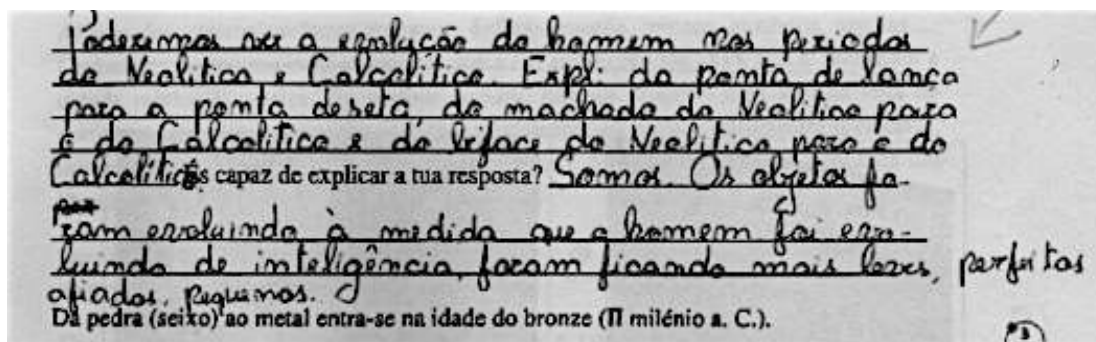 Poderemos ver a evolução do homem nos periodos
do Neolitico e Calcolítico. Expl: da ponta de lança
para a ponta de seta, do machado do Neolitico para
o do Calcolitico e do biface do Neolitico para o do
Calcolítico. És capaz de explicar a tua resposta? Somos. Os objetos fo-
ram evoluindo à medida que o homem foi evo-
luindo de inteligência, foram ficando mais leves, perfeitos
afiados, pequenos.
Da pedra (seixo) ao metal entra-se na idade do bronze (II milénio a. C.).